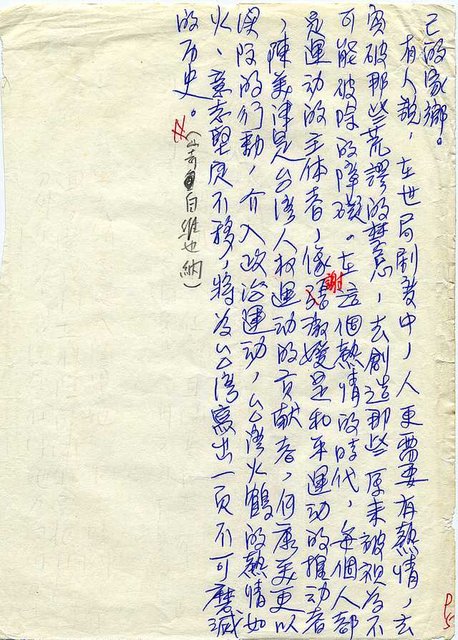 己的家鄉。
有人說，在世局劇變中，人更需要有熱情，去
突破那些荒謬的禁忌，去創造那些原来被視為不
可能破除的障礙。在這個熱情的時代，每個人都
是運动的主体者，像謝淑媛是和平運动的推动者
，陳美津是台湾人权運动的貢献者，何康美更以
漂隊的行動，介入政治運动，台湾火鶴的熱情如
火、意志堅定不移，將為台湾寫出一頁不可磨滅
的历史。
（寄自維也納）
P5